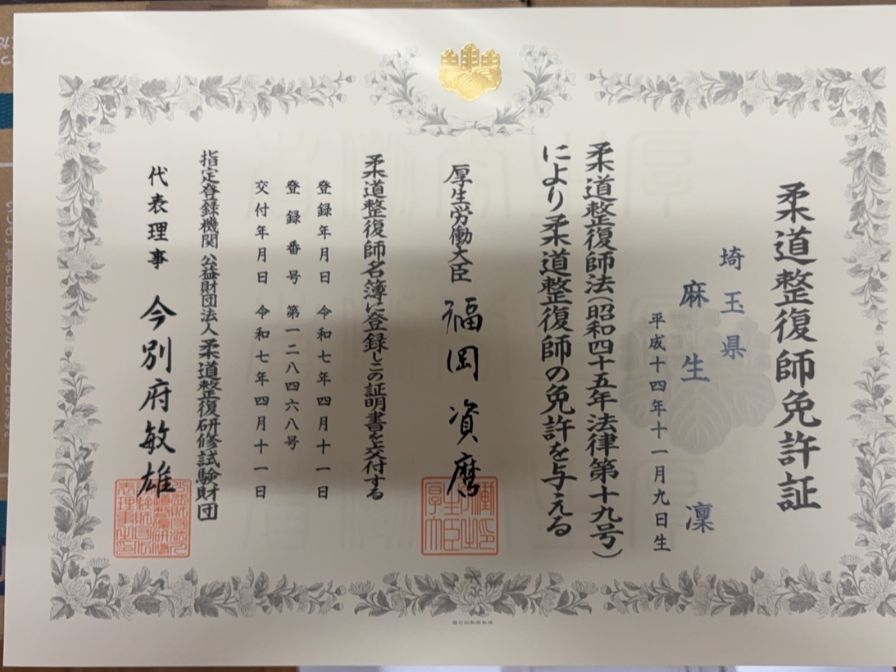 柔道整復師免許証
埼玉県
麻生 凜
平成十四年十一月九日生
柔道整復師法（昭和四十五年法律第十九号）
により柔道整復師の免許を与える
厚生労働大臣 福岡資麿
柔道整復師名簿に登録しこの証明書を交付する
登録年月日 令和七年四月十一日
登録番号 第一二八四六八号
交付年月日 令和七年四月十一日
指定登録機関 公益財団法人 柔道整復研修試験財団
代表理事 今別府敏雄